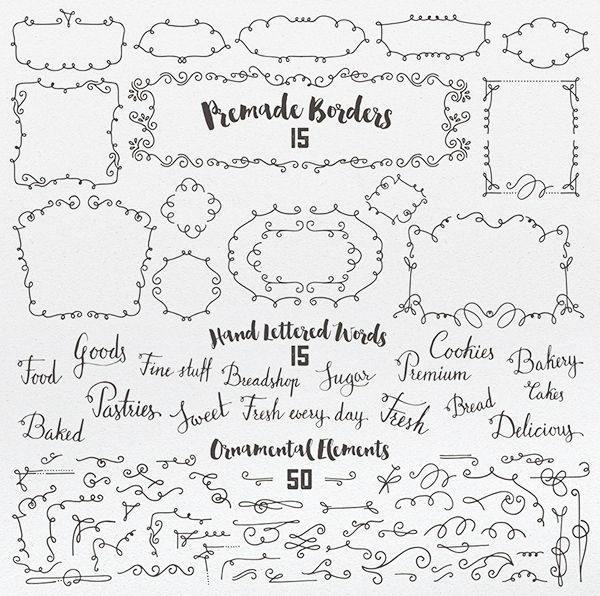 Premade Borders
15
Hand Lettered Words
15
Goods
Cookies
Food
Fine stuff
Breadshop
Sugar
Premium
Bakery
Cakes
Pastries
Sweet
Fresh every day
Fresh
Bread
Baked
Delicious
Ornamental Elements
50